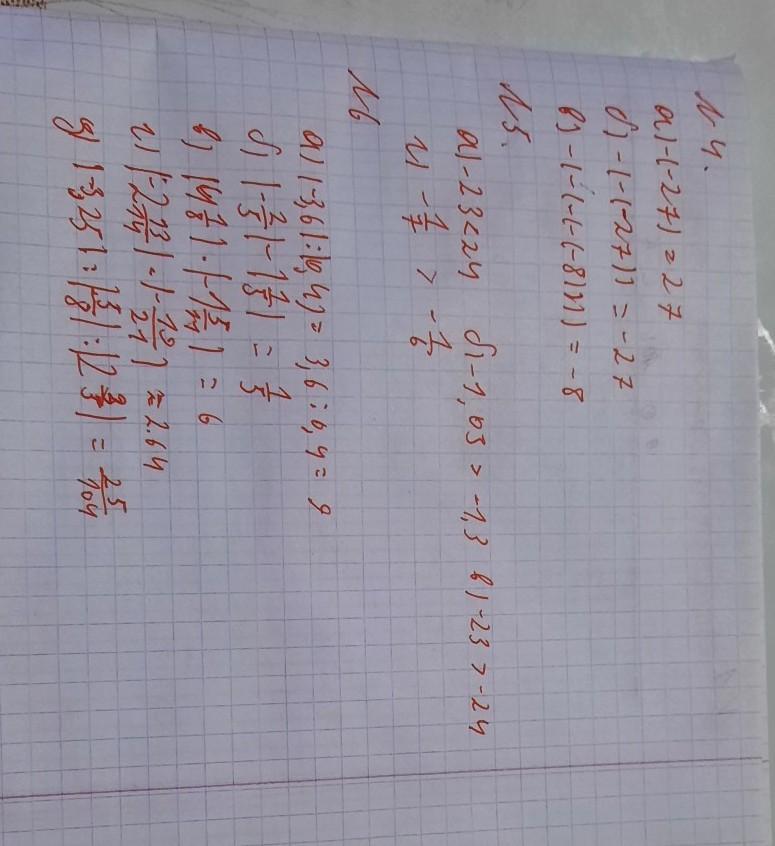 № 4.
а) -(-27) = 27
б) -(-(-27)) = -27
в) -(-(-(-(-8)))) = -8
№ 5.
а) -23 < 24 б) -1,03 > -1,3 в) -23 > -24
г) -1/7 > -1/6
№ 6
а) |-3,6| : |0,4| = 3,6 : 0,4 = 9
б) |-2/5| - |1/5| = 1/5
в) |4 7/8| · |-1 5/| = 6
г) |-2 13/14| · |-19/21| ≈ 2.64
д) |-3,25| : |3/8| : |2/3| = 25/104